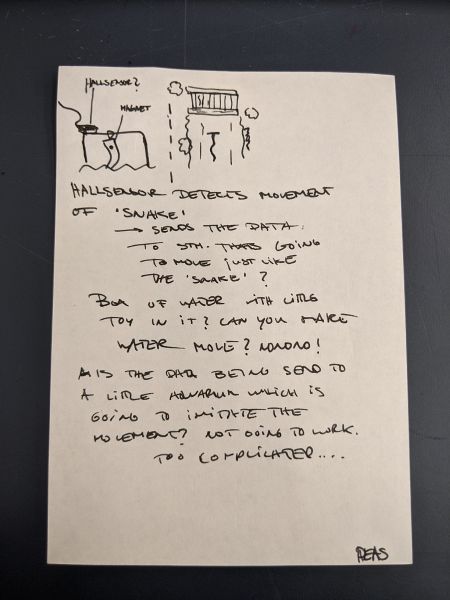 HALLSENSOR?
MAGNET
HALLSENSOR DETECTS MOVEMENT
OF 'SNAKE'
→ SENDS THE DATA.
TO STH. THATS GOING
TO MOVE JUST LIKE
THE 'SNAKE'?
BOX OF WATER WITH LITTLE
TOY IN IT? CAN YOU MAKE
WATER MOVE? NONONO!
IS THE DATA BEING SEND TO
A LITTLE AQUARIUM WHICH IS
GOING TO IMITATE THE
MOVEMENT? NOT GOING TO WORK.
TOO COMPLICATED....
IDEAS